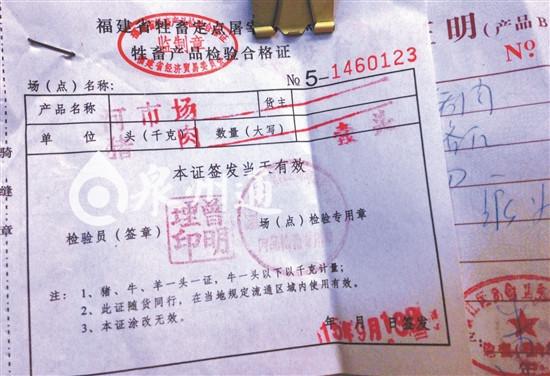 福建省牲畜定点屠
监制章
福建省经济贸易委员会
牲畜产品检验合格证
场（点）名称：
№ 5-1460123
河市场
产品名称
货主
猪肉
单位
头（千克）
数量（大写）
壹头
本证签发当天有效
泉州通
检验员（签章）
场（点）检验专用章
注：1、猪、牛、羊一头一证，牛一头以下以千克计量；
2、此证随货同行，在当地规定流通区域内使用有效。
3、本证涂改无效。
年 月 日签发
骑缝章
明（产品B
№